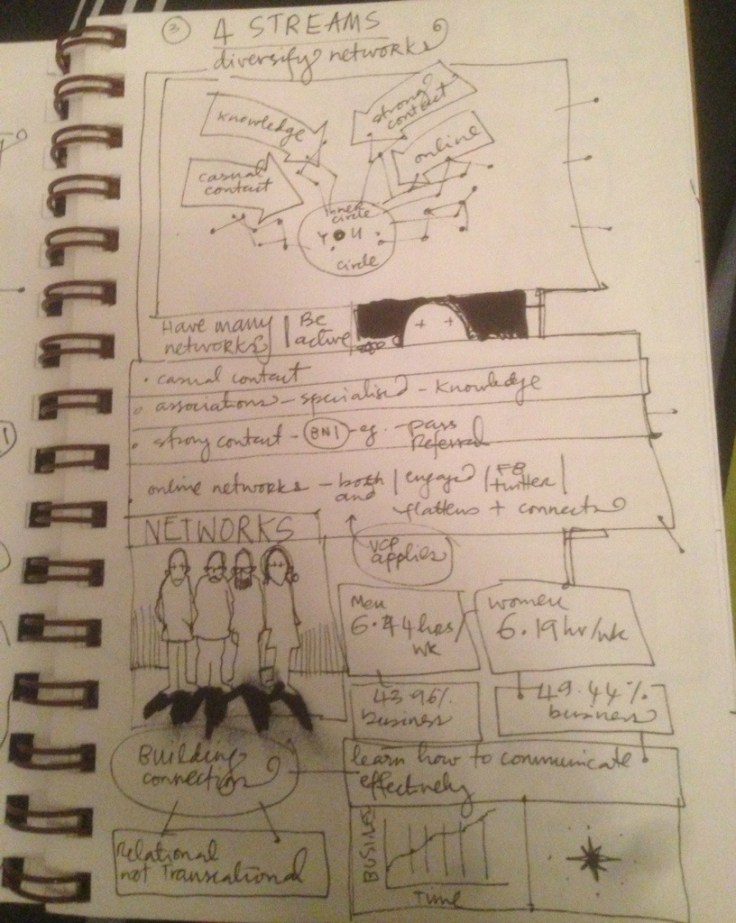 3 4 STREAMS
diversify networks
knowledge
strong
contact
casual
contact
online
inner
circle
YOU
circle
Have many
networks
Be
active
• casual contact
• associations - specialised - knowledge
• strong contact - BNI - eg. - pass
Referral
online networks - both
and
engaged
FB
twitter
flattens + connects
NETWORKS
VCP
applies
Men
6.44 hrs/
wk
women
6.19 hr/wk
43.96%
business
49.44%
business
Building
connection
learn how to communicate
effectively
Relational
not Transcational
BUSINESS
Time